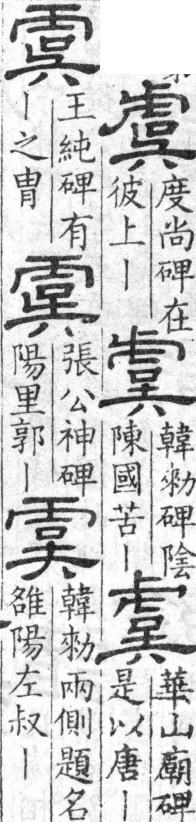 虞
度尚碑在
彼上丨
虞
韓勑碑陰
陳國苦丨
虞
華山廟碑
是以唐丨
虞
王純碑有
丨之胄
虞
張公神碑
陽里郭丨
虞
韓勑兩側題名
雒陽左叔丨